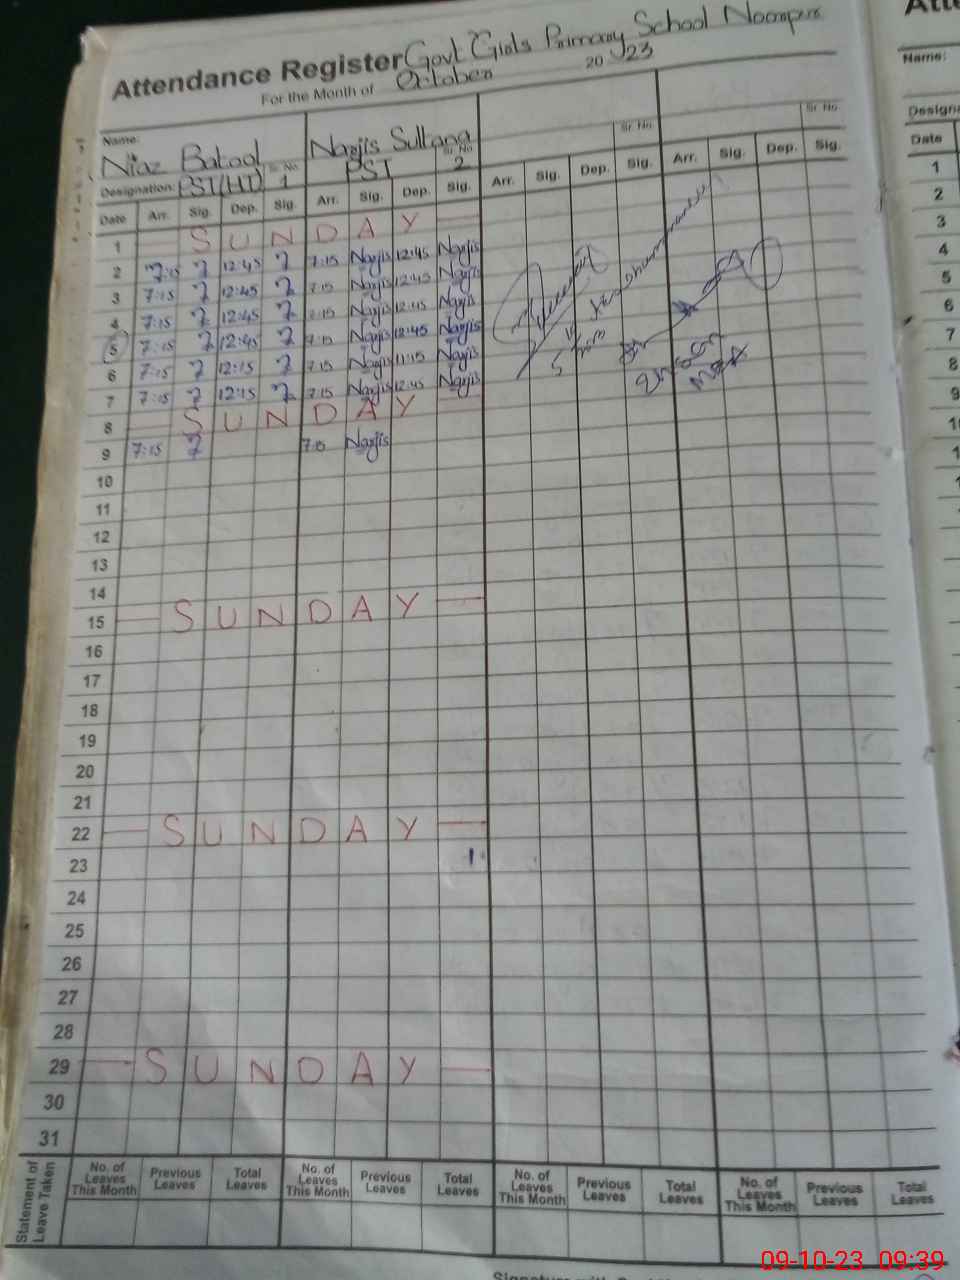 Attendance Register Govt Girls Primary School Noorpur
For the Month of October 2023
Name: Niaz Batool Narjis Sultana
Designation: PST(HT) Sr. No 1 PST Sr. No 2 Sr. No Sr. No
Date Arr. Sig. Dep. Sig. Arr. Sig. Dep. Sig. Arr. Sig. Dep. Sig. Arr. Sig. Dep. Sig.
1 SUNDAY
2 7:15 12:45 7:15 Narjis 12:45 Narjis
3 7:15 12:45 7:15 Narjis 12:45 Narjis
4 7:15 12:45 7:15 Narjis 12:45 Narjis
5 7:15 12:45 7:15 Narjis 12:45 Narjis
6 7:15 12:15 7:15 Narjis 11:15 Narjis
7 7:15 12:15 7:15 Narjis 12:45 Narjis
8 SUNDAY
9 7:15 7:15 Narjis
10
11
12
13
14
15 SUNDAY
16
17
18
19
20
21
22 SUNDAY
23
24
25
26
27
28
29 SUNDAY
30
31
Statement of Leave Taken
No. of Leaves This Month Previous Leaves Total Leaves No. of Leaves This Month Previous Leaves Total Leaves No. of Leaves This Month Previous Leaves Total Leaves No. of Leaves This Month Previous Leaves Total Leaves
Name:
Date
1
2
3
4
5
6
7
8
9
09-10-23 09:39